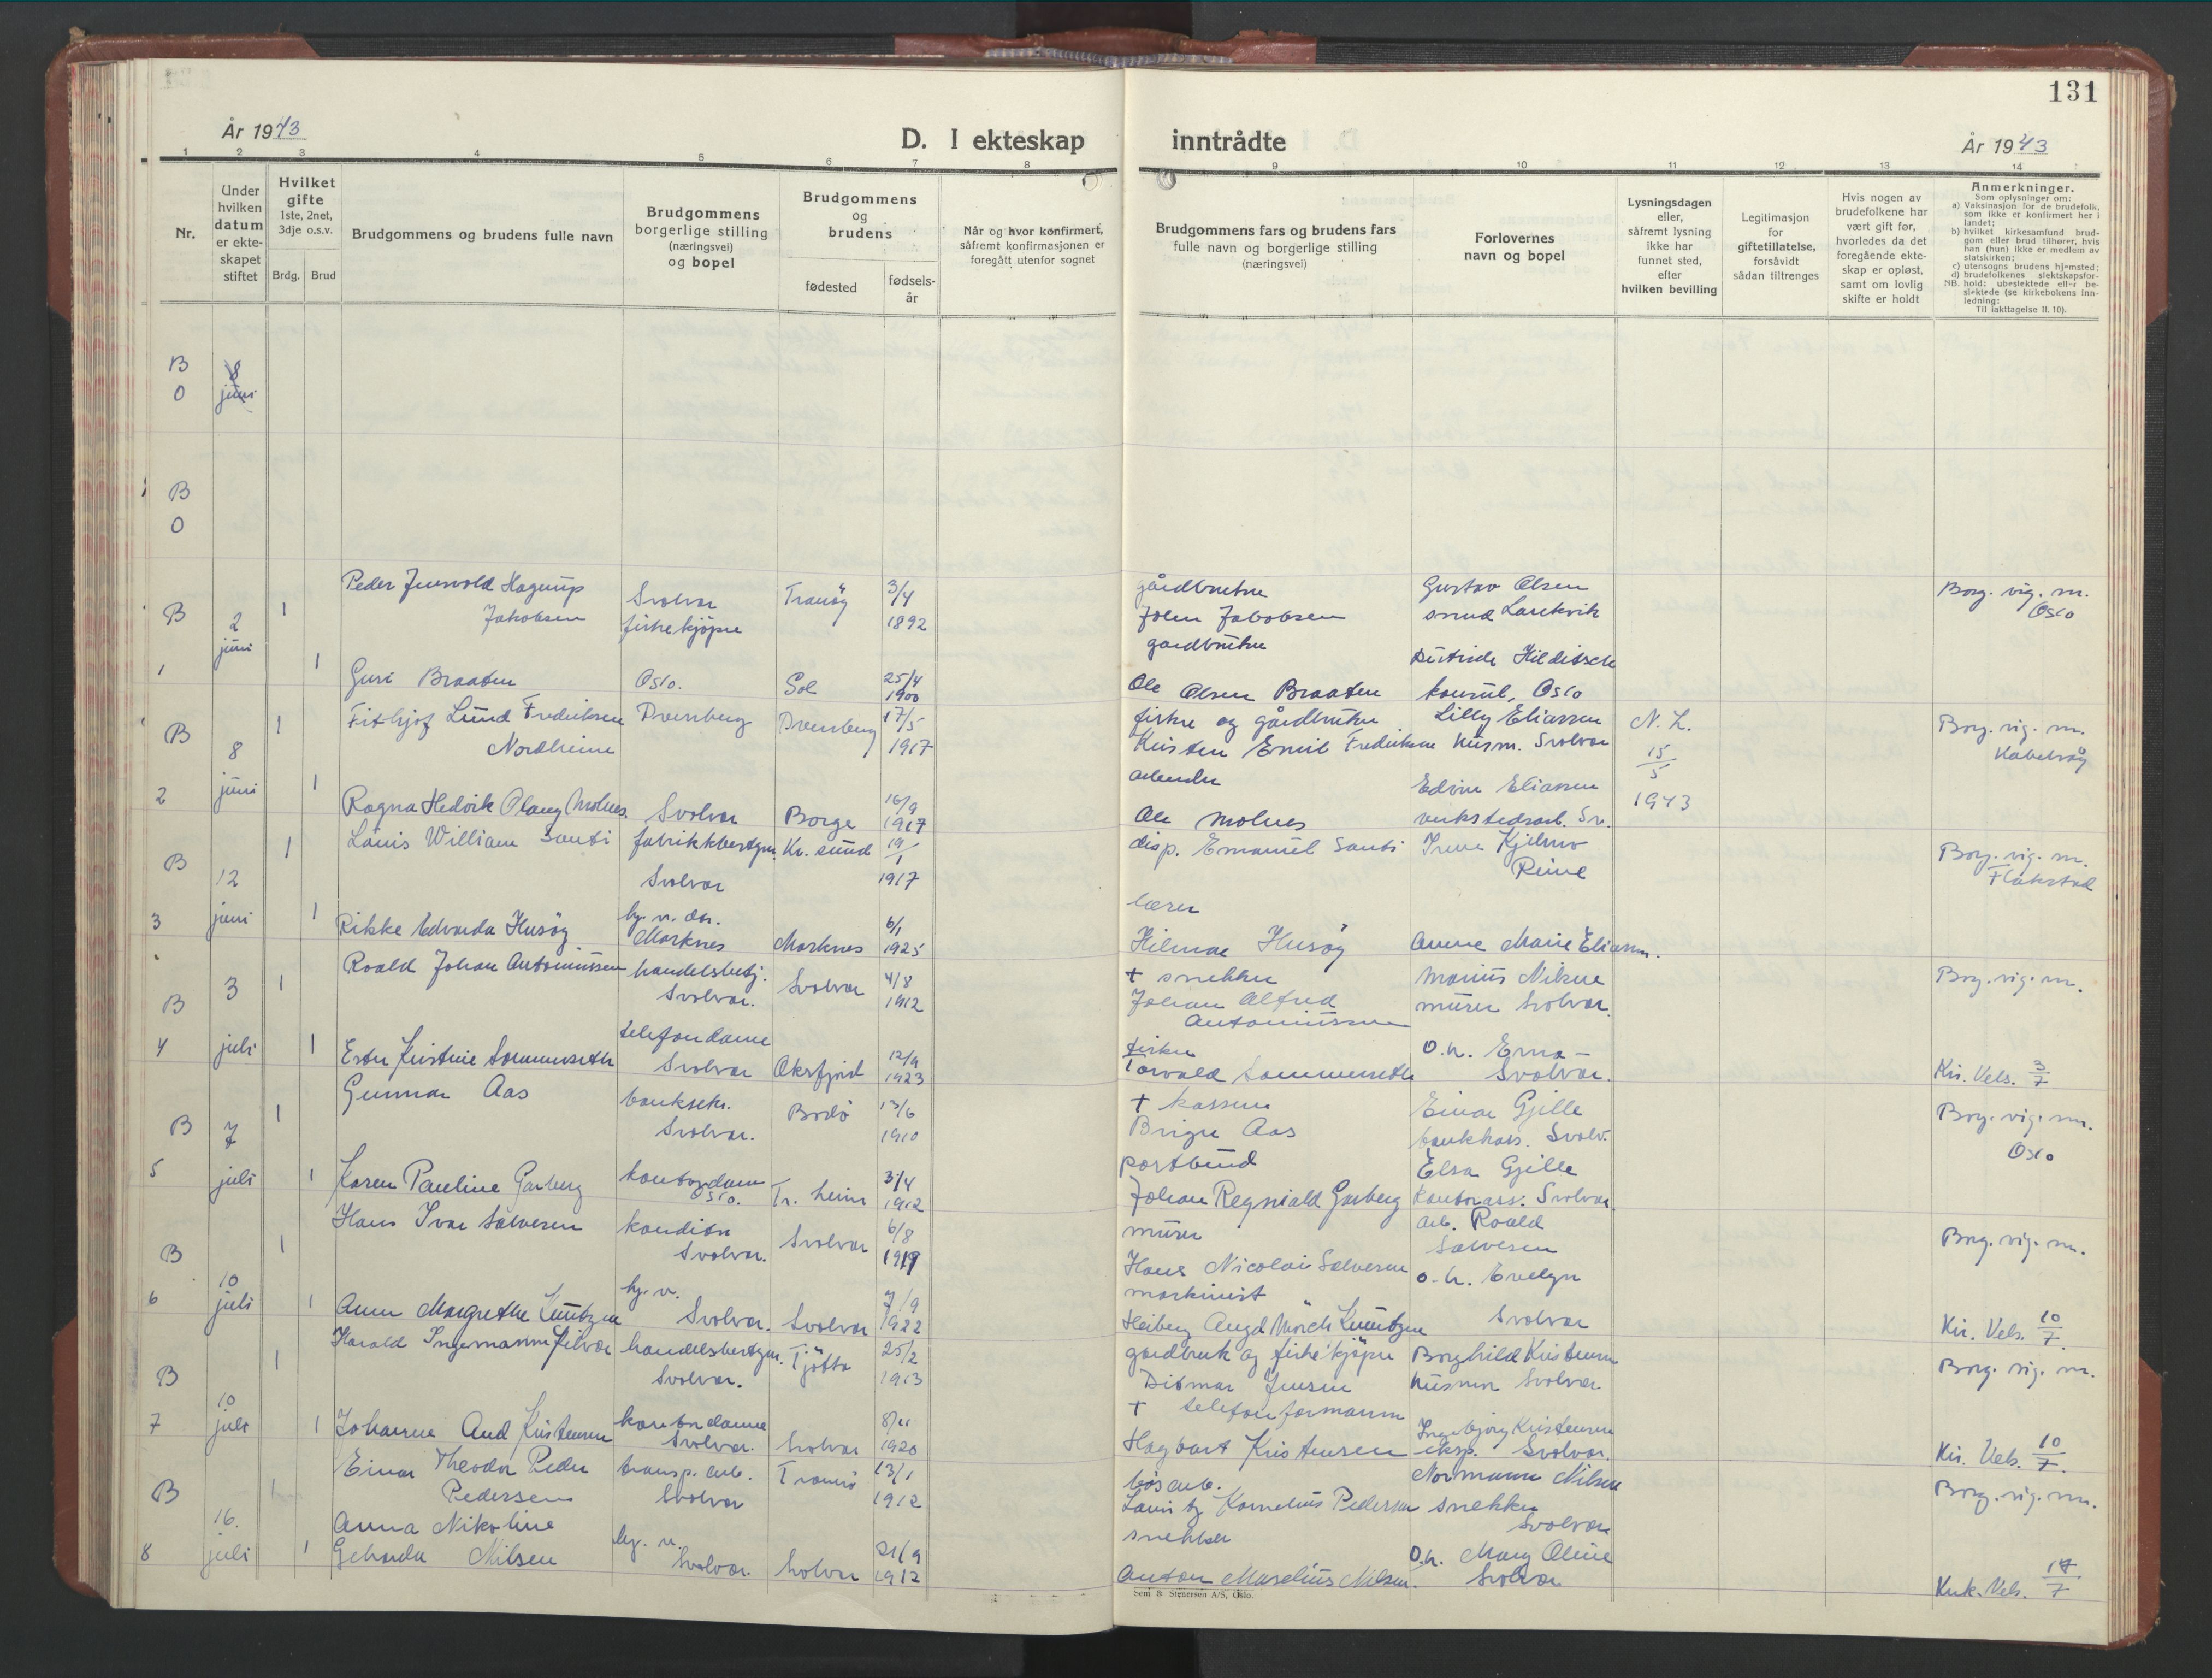 131
År 1943
D. I ekteskap inntrådte
År 1943
1 2 3 4 5 6 7 8 9 10 11 12 13 14
Nr.
Under hvilken datum er ekte-skapet stiftet
Hvilket gifte 1ste, 2net, 3dje o.s.v.
Brdg. Brud
Brudgommens og brudens fulle navn
Brudgommens borgerlige stilling (næringsvei) og bopel
Brudgommens og brudens
fødested
fødsels-år
Når og hvor konfirmert, såfremt konfirmasjonen er foregått utenfor sognet
Brudgommens fars og brudens fars fulle navn og borgerlige stilling (næringsvei)
Forlovernes navn og bopel
Lysningsdagen eller, såfremt lysning ikke har funnet sted, efter hvilken bevilling
Legitimasjon for giftetillatelse, forsåvidt sådan tiltrenges
Hvis nogen av brudefolkene har vært gift før, hvorledes da det foregående ekte-skap er opløst, samt om lovlig skifte er holdt
Anmerkninger.
Som oplysninger om:
a) Vaksinasjon for de brudefolk, som ikke er konfirmert her i landet;
b) hvilket kirkesamfund brud-gom eller brud tilhører, hvis han (hun) ikke er medlem av statskirken;
c) utensogns brudens hjemsted;
d) brudefolkenes slektskapsfor-hold: ubeslektede eller be-slektede (se kirkebokens inn-ledning:
NB.
Til iakttagelse II. 10).
B 8
0 juni
B
0
B 2 juni 1 Peder Jensvold Hagerup Jakobsen Svolvær fiskekjøper Tranöy 3/4 1892 gårdbruker John Jakobsen Gustav Olsen smed Laukvik Borg. vig. m. Oslo
1 1 Guri Braaten Oslo. Gol 25/4 1900 gardbruker Ole Olsen Braaten Hilditsch konsul, Oslo
B 8 juni 1 Fithjof Lund Fredriksen Nordheim Drevsberg Drevsberg 17/5 1917 fisker og gårdbruker Kristen Emil Fredriksen Lilly Eliassen husm. Svolvær N. L. 15/5 1943 Borg. vig. m. Kabelvåg
2 1 Ragna Hedvik Olaug Molnes Svolvær Borge 16/9 1917 arbeider Ole Molnes Edvin Eliassen verkstedsarb. Sv.
B 12 juni 1 Louis William Santi fabrikkbestyrer Svolvær Kr. sund 19/1 1917 disp. Emanuel Santi Irene Kjelmo Reine Borg. vig. m. Flakstad
3 1 Rikke Edvarda Husöy hj. v. dtr. Mærknes 6/1 1925 lærer Hilmar Husöy Anne Marie Eliassen.
B 3 juli 1 Roald Johan Antoniussen handelsbetj. Svolvær. Svolvær 4/8 1912 + snekker Johan Alfred Antoniussen Marius Nilsen murer Svolvær. Borg. vig. m.
4 1 Ester Kristine Sommerseth telefondame Svolvær Øksfjord 12/9 1923 fisker Torvald Sommerseth O. h. Erna – Svolvær. Kir. Vels. 3/7
B 7 juli 1 Gunnar Aas banksekr. Svolvær. Bodö 13/6 1910 + kasserer Birger Aas Einar Gjelle bankkass. Svolv. Borg. vig. m. Oslo
5 1 Karen Pauline Garberg kontordame Oslo. Tr. heim 3/4 1912 postbud Johan Regnvald Garberg Elsa Gjelle kontorass. Svolvær.
B 10 juli 1 Hans Ivar Salvesen konditor Svolvær. Svolvær 6/8 1919 murer Hans Nicolai Salvesen arb. Roald Salvesen Borg. vig. m.
6 1 Anna Margrethe Kuntzen hj. v. Svolvær. Svolvær 7/9 1922 maskinist Heiberg Augd Mörch Kuntzen o. h. Evelyn Svolvær Kir. Vels. 10/7
B 10 juli 1 Harald Ingemann Jilvær handelsbestyrer. Svolvær. Tjötta 25/2 1913 gardbruk og fiskekjöper Ditmar Jensen Borghild Kristensen husmor Svolvær Borg. vig. m.
7 1 Johanne Aud Kristensen kontordame Svolvær. Svolvær 8/11 1920 + telefonformann Hagbart Kristensen Ingebjörg Kristensen eksp. Svolvær. Kir. Vels. 10/7.
B 16. juli 1 Einar Theodor Peder Pedersen transp. arb. Svolvær Tromsö 13/1 1912 Kornelius Pedersen Normann Nilsen snekker Svolvær Borg. vig. m.
8 1 Anna Nikoline Geharda Nilsen hj. v. Svolvær. Svolvær 21/9 1912 snekker Anton Marelius Nilsen. O. h. Mary Oline Svolvær Kirk. Vels. 17/7
Sem & Stenersen A/S, Oslo.